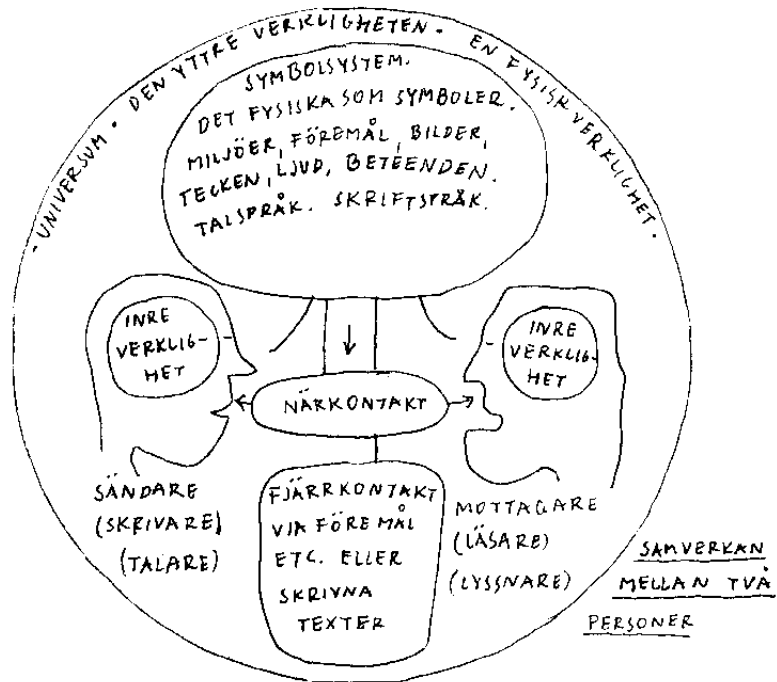 · UNIVERSUM · DEN YTTRE VERKLIGHETEN · EN FYSISK VERKLIGHET ·
SYMBOLSYSTEM.
DET FYSISKA SOM SYMBOLER.
MILJÖER, FÖREMÅL, BILDER,
TECKEN, LJUD, BETEENDEN.
TALSPRÅK. SKRIFTSPRÅK.
INRE
VERKLIG-
HET
INRE
VERKLIG-
HET
NÄRKONTAKT
SÄNDARE
(SKRIVARE)
(TALARE)
FJÄRRKONTAKT
VIA FÖREMÅL
ETC. ELLER
SKRIVNA
TEXTER
MOTTAGARE
(LÄSARE)
(LYSSNARE)
SAMVERKAN
MELLAN TVÅ
PERSONER